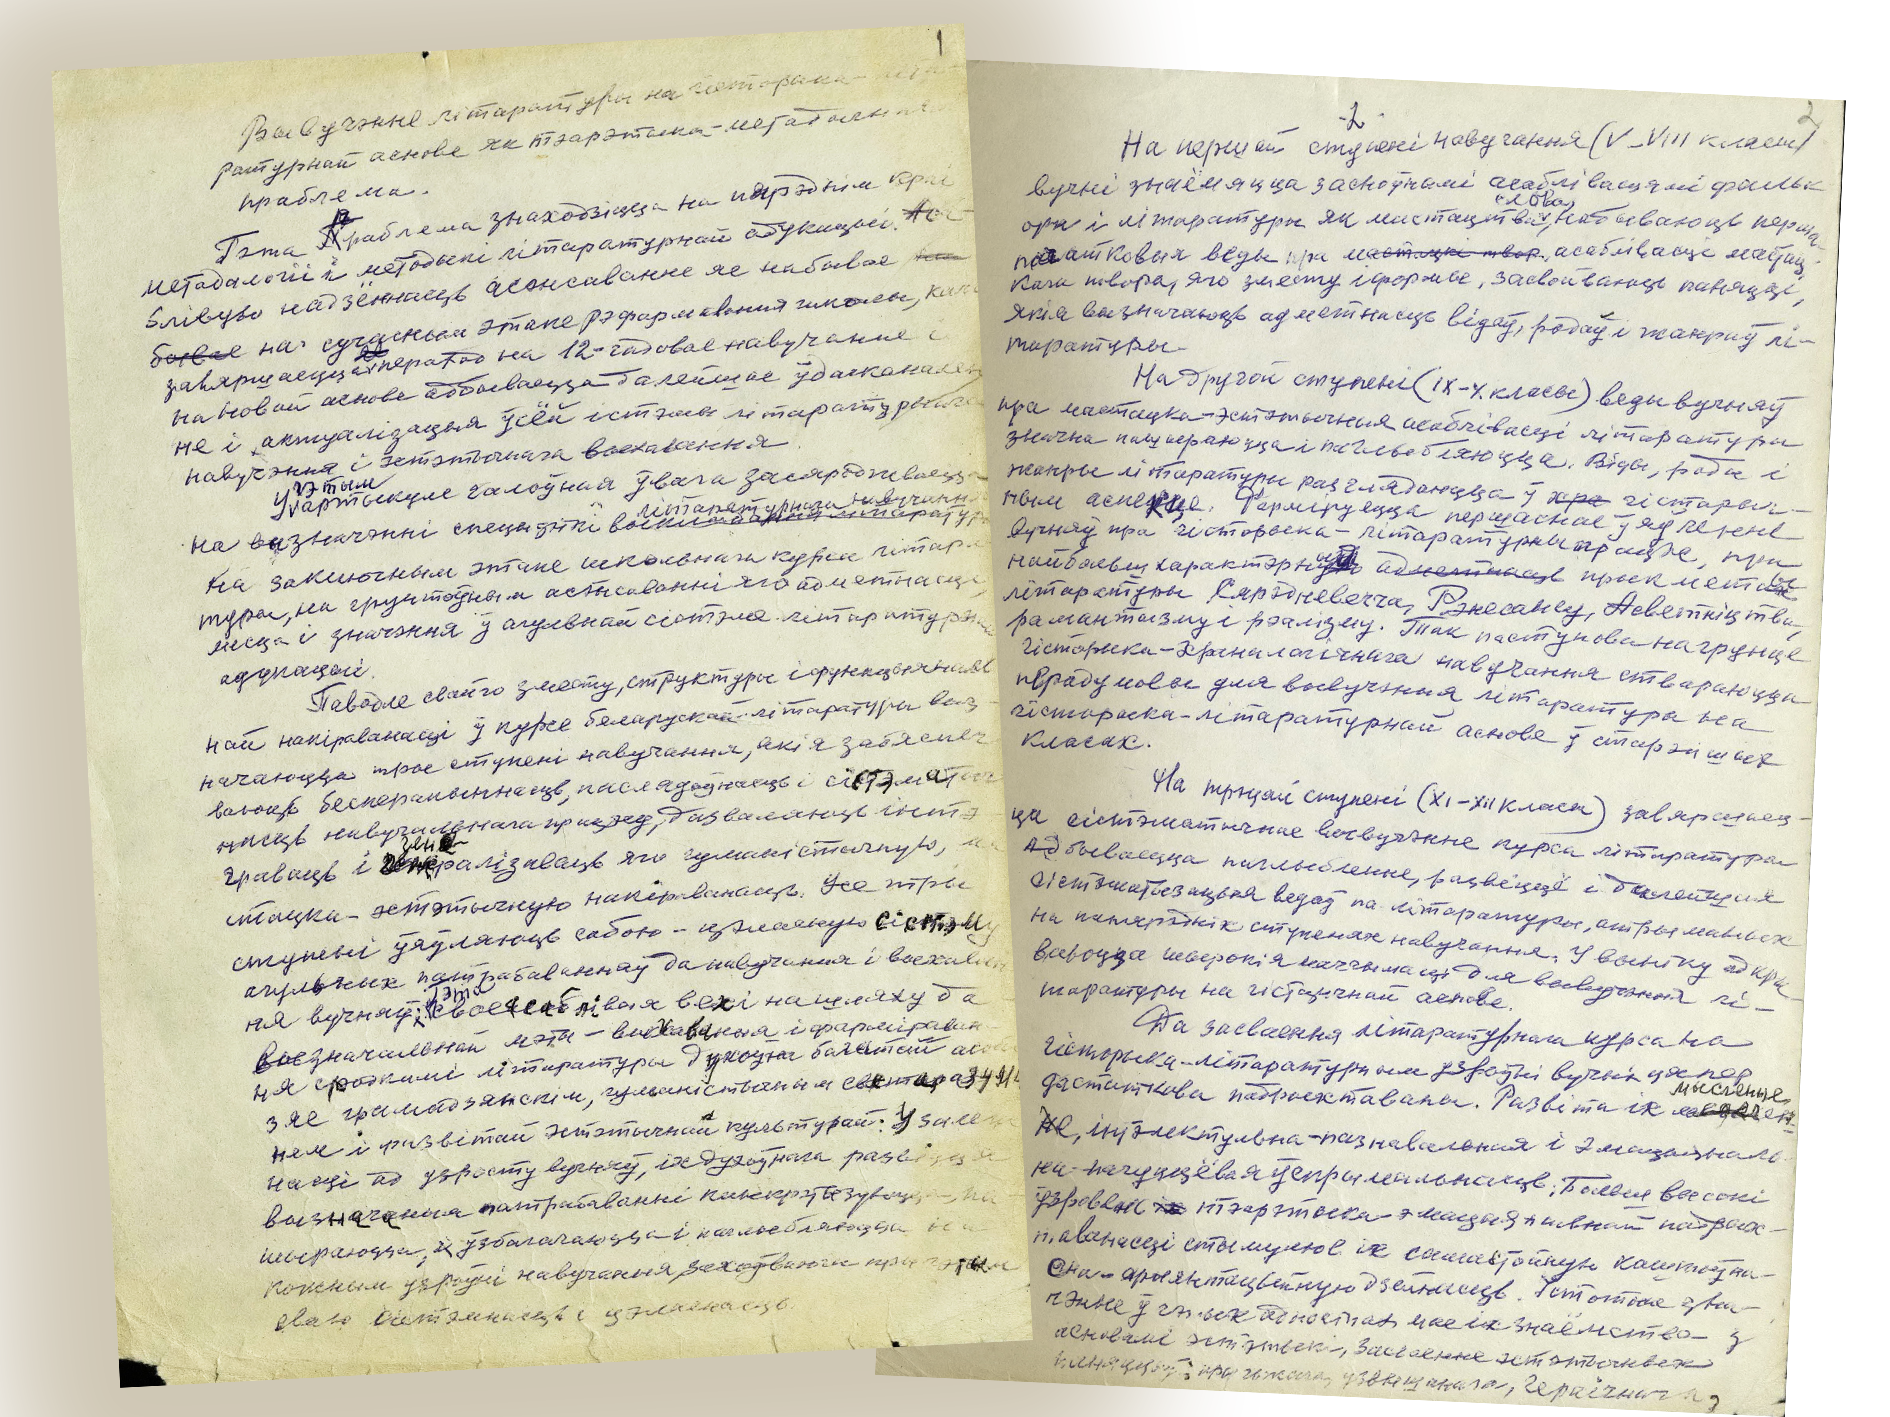 1
Вывучэнне літаратуры на гісторыка-літа-
ратурнай аснове як тэарэтыка-метадычная
праблема.
Гэта праблема знаходзіцца на пярэднім краі
метадалогіі і методыкі літаратурнай адукацыі. Аса-
блівую надзённасць асэнсаванне яе набывае
на сучасным этапе рэфармавання школы, калі
завяршаецца пераход на 12-гадовае навучанне і
на новай аснове адбываецца далейшае ўдасканален-
не і актуалізацыя ўсёй сістэмы літаратурнага
навучання і эстэтычнага выхавання.
У гэтым артыкуле галоўная ўвага засяроджваецца
на вызначэнні спецыфікі літаратурнага навучання
на заключным этапе школьнага курса літара-
туры, на грунтоўным асэнсаванні яго адметнасці,
месца і значэння ў агульнай сістэме літаратурнай
адукацыі.
Паводле свайго зместу, структуры і функцыяналь-
най накіраванасці ў курсе беларускай літаратуры выз-
начаюцца тры ступені навучання, якія забяспеч-
ваюць бесперапыннасць, паслядоўнасць і сістэматыч-
насць навучальнага працэсу, дазваляюць інтэ-
граваць і генералізаваць яго гуманістычную, ма-
стацка-эстэтычную накіраванасць. Усе тры
ступені ўяўляюць сабою цэласную сістэму
агульных патрабаванняў да навучання і выхаван-
ня вучняў: гэта своеасаблівыя вехі на шляху да
вызначальнай мэты – выхавання і фарміраван-
ня сродкамі літаратуры духоўна багатай асобы
з яе грамадзянскім, гуманістычным светаразумен-
нем і развітай эстэтычнай культурай. У залеж-
насці ад узросту вучняў, іх духоўнага развіцця
вызначаныя патрабаванні канкрэтызуюцца, па-
шыраюцца, узбагачаюцца і паглыбляюцца на
кожным узроўні навучання, захоўваючы пры гэтым
сваю сістэмнасць і цэласнасць.
-2-
2
На першай ступені навучання (V–VIII класы)
вучні знаёмяцца з асноўнымі асаблівасцямі фальк-
лору і літаратуры як мастацтва слова, набываюць перша-
пачатковыя веды пра асаблівасці мастац-
кага твора, яго зместу і формы, засвойваюць паняцці,
якія вызначаюць адметнасць відаў, родаў і жанраў лі-
таратуры.
На другой ступені (IX–X класы) веды вучняў
пра мастацка-эстэтычныя асаблівасці літаратуры
значна пашыраюцца і паглыбляюцца. Віды, роды і
жанры літаратуры разглядаюцца ў гістарыч-
ным аспекце. Фарміруецца першаснае ўяўленне
вучняў пра гісторыка-літаратурны працэс, пра
найбольш характэрныя прыкметы
літаратуры Сярэдневечча, Рэнесансу, Асветніцтва,
рамантызму і рэалізму. Так паступова на грунце
гісторыка-храналагічнага навучання ствараюцца
перадумовы для вывучэння літаратуры на
гісторыка-літаратурнай аснове ў старэйшых
класах.
На трэцяй ступені (XI–XII класы) завяршаец-
ца сістэматычнае вывучэнне курса літаратуры
Адбываецца паглыбленне, развіццё і далейшая
сістэматызацыя ведаў па літаратуры, атрыманых
на папярэдніх ступенях навучання. У выніку адкры-
ваюцца шырокія магчымасці для вывучэння лі-
таратуры на гістарычнай аснове.
Да засваення літаратурнага курса на
гісторыка-літаратурным узроўні вучні цяпер
дастаткова падрыхтаваны. Развіта іх мысленне,
інтэлектуальна-пазнавальная і эмацыяналь-
на-пачуццёвая ўспрымальнасць. Больш высокі
ўзровень тэарэтыка-эмацыянальнай падрых-
таванасці стымулюе іх самастойную каштоўна-
сна-арыентацыйную дзейнасць. Істотнае зна-
чэнне ў гэтых адносінах мае іх знаёмства з
асновамі эстэтыкі, засваенне эстэтычных
паняццяў: прыгожага, узвышанага, гераічнага,